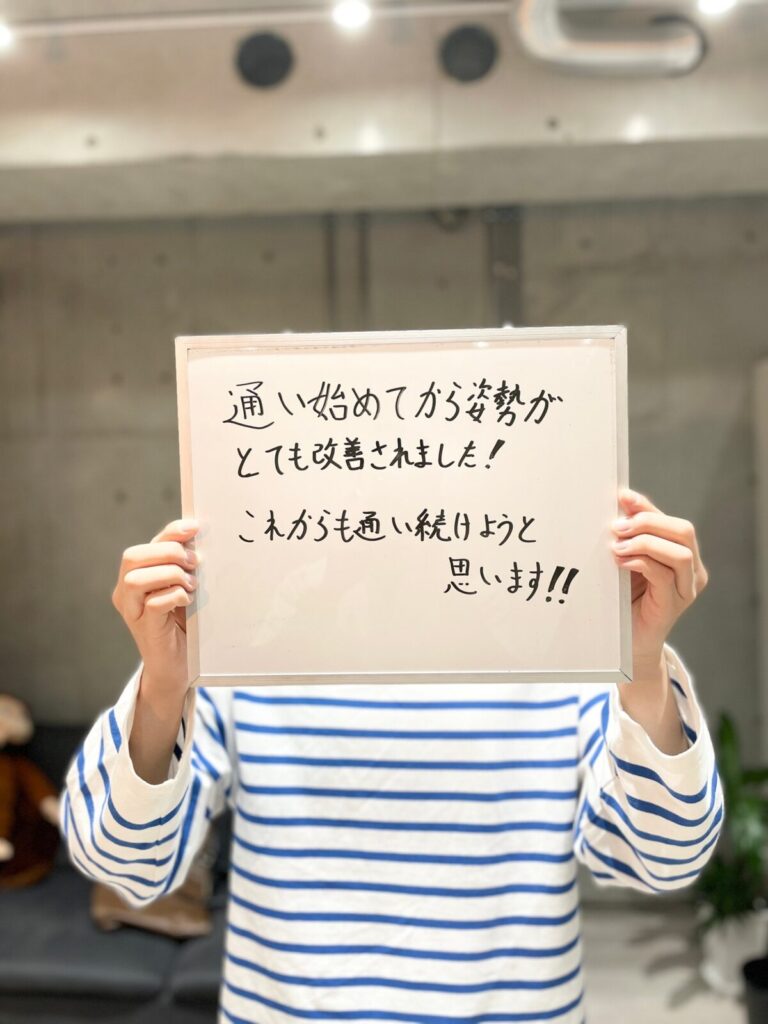 通い始めてから姿勢が
とても改善されました！
これからも通い続けようと
思います！！